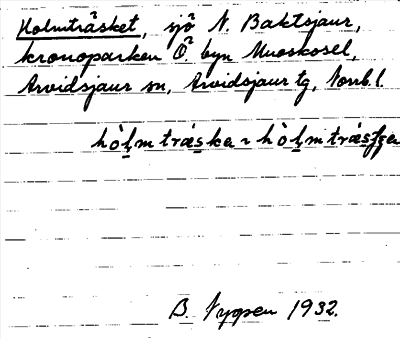 Holmträsket, sjö N. Baktsjaur,
kronoparken Ö. byn Muoskosel,
Arvidsjaur sn, Arvidsjaur tg, Norrb. l.
hòl̥mtræ̀ska ~ hòl̥mtræ̀sʃʃa
B. Nygren 1932.